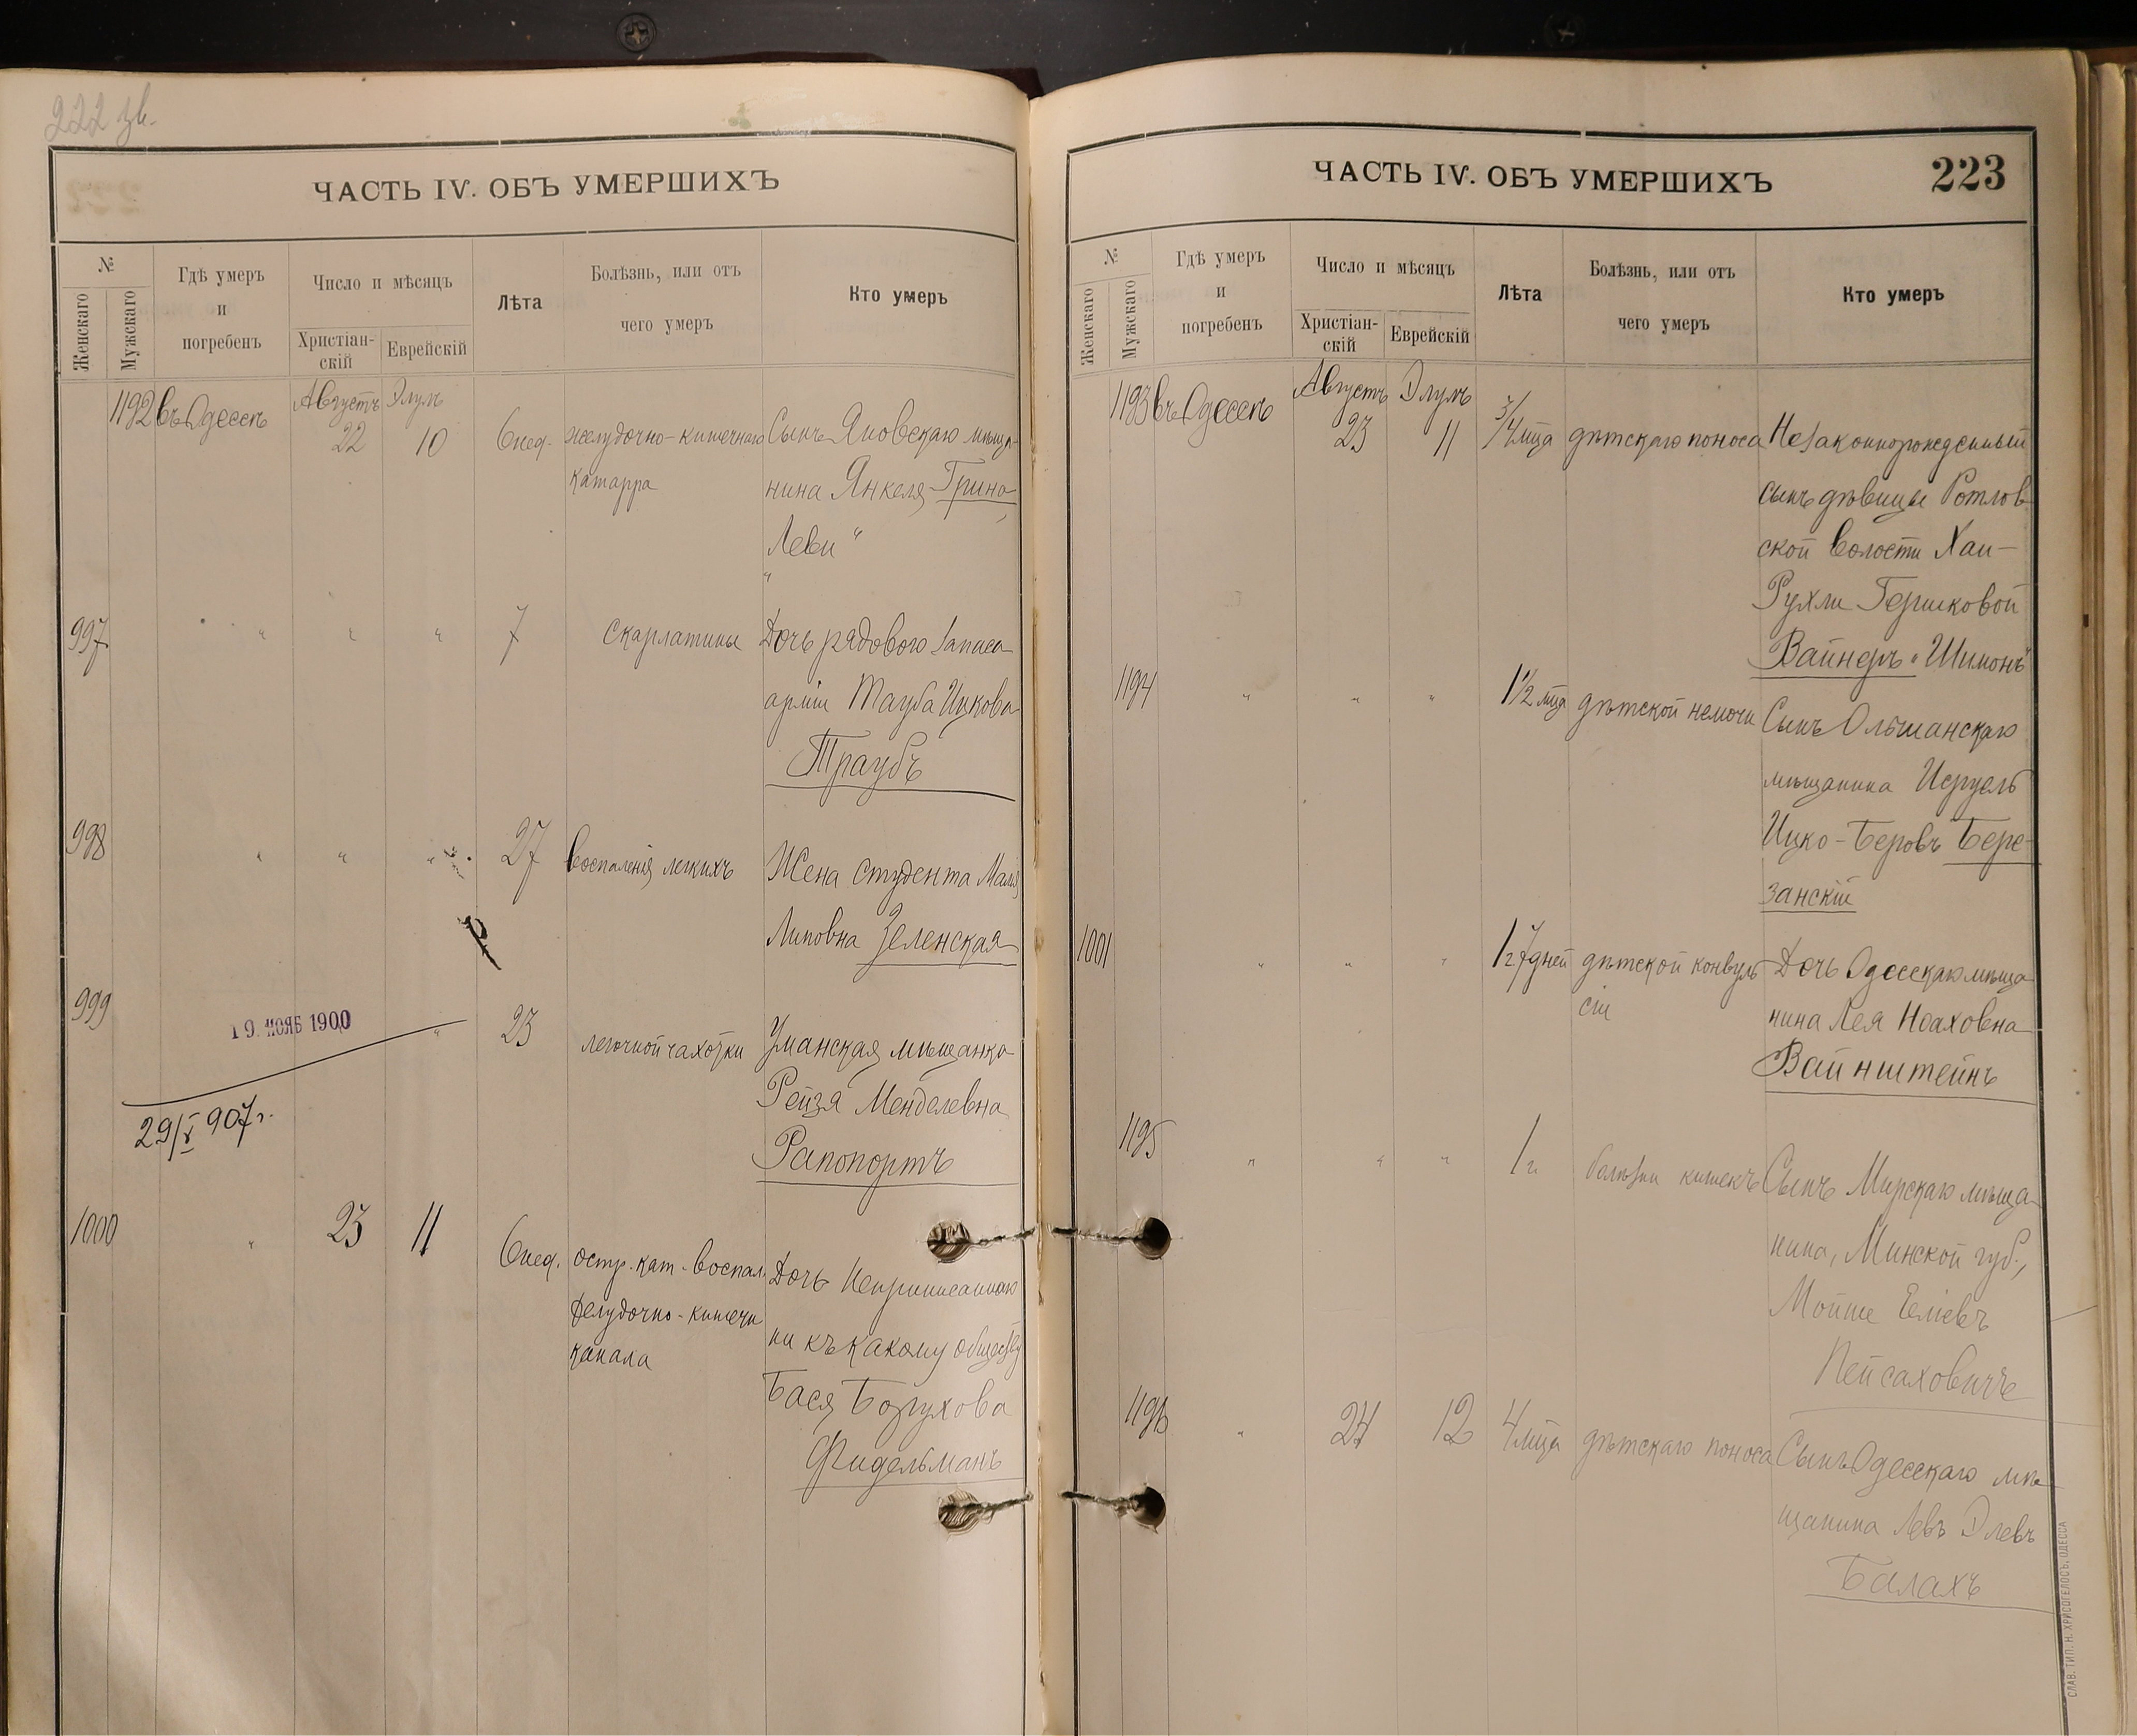 222 зв.
ЧАСТЬ IV. ОБЪ УМЕРШИХЪ
№
Женскаго
Мужскаго
Гдѣ умеръ
и
погребенъ
Число и мѣсяцъ
Христіан-
скій
Еврейскій
Лѣта
Болѣзнь, или отъ
чего умеръ
Кто умеръ
1192 въ Одессѣ Августъ 22 Элулъ 10 6 нед. желудочно-кишечнаго Сынъ Яновскаго мѣща-
катарра нина Янкеля Грина
Леви "
997 " " " 7 скарлатины Дочь рядового запаса
арміи Тауба Ицкова
Траубъ
998 " " " 27 воспаленія легкихъ Жена студента Маля
Липовна Зеленская
999 19. НОЯБ 1900 " 23 легочной чахотки Уманская мѣщанка
29/X 907 г. Рейзя Менделевна
Рапопортъ
1000 " 23 11 6 нед. остр. кат. воспал. Дочь Неприписаннаго
желудочно-кишечн ни къ какому обществу
канала Бася Борухова
Фидельманъ
ЧАСТЬ IV. ОБЪ УМЕРШИХЪ
223
№
Женскаго
Мужскаго
Гдѣ умеръ
и
погребенъ
Число и мѣсяцъ
Христіан-
скій
Еврейскій
Лѣта
Болѣзнь, или отъ
чего умеръ
Кто умеръ
1193 въ Одессѣ Августъ 23 Элулъ 11 3/4 мца дѣтскаго поноса Незаконнорожденный
сынъ дѣвицы Ротлов
ской волости Хаи-
Рухли Гершковой
Вайнеръ "Шимонъ"
1194 " " " 1 1/2 мца дѣтской немочи Сынъ Ольшанскаго
мѣщанина Исруель
Ицко-Беровъ Бере-
занскій
1001 " " " 1 г 7 дней дѣтской конвуль Дочь Одесскаго мѣща
сіи нина Лея Ноаховна
Вайнштейнъ
1195 " " " 1 г. болѣзни кишекъ Сынъ Мирскаго мѣща-
нина, Минской губ.,
Мойше Еліевъ
Пейсаховичъ
1196 " 24 12 4 мца дѣтскаго поноса Сынъ Одесскаго мѣ-
щанина Левъ Элевъ
Балахъ
СЛАВ. ТИП. Н. ХРИСОГЕЛОСЪ, ОДЕССА